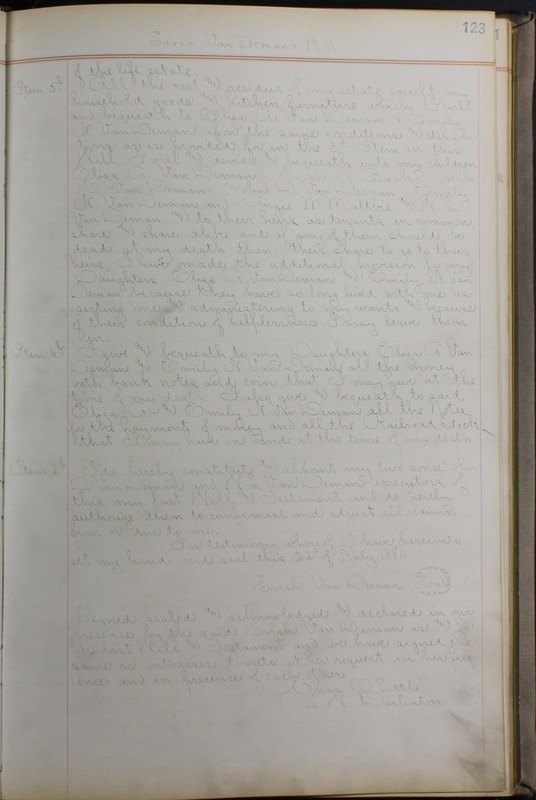 123
Sarah Van Deman's Will
of the life estate.
Item 5th All the rest & residue of my estate except my
household goods & kitchen furniture which I will
and bequeath to Eliza A. Van Deman & Emily
N. Van Deman upon the same conditions &
as is provided for in the 3d Item in this
Will, I will & devise & bequeath unto my children
Eliza A. Van Deman
Van Deman John D. Van Deman Emily
N. Van Deman and Angie M. Maltbie &
Van Deman & to their heirs as tenants in common
share & share alike and if any of them should be
dead at my death then their share to go to their
heirs. I have made the additional provision for my
Daughters Eliza A. Van Deman & Emily N. Van
Deman because they have so long lived with me as-
sisting me & administering to my wants & because
of their condition of helplessness I may leave them
in.
Item 6th I give & bequeath to my Daughters Eliza A. Van
Deman & Emily N. Van Deman all the money
both bank notes and coin that I may have at the
time of my death I also give & bequeath to said
Eliza A. & Emily N. Van Deman all the Notes
for the payment of money and all the Railroad Stock
that I may have on hands at the time of my death
Item I do hereby constitute & appoint my two sons John
D. Van Deman and Van Deman executors of
this my last Will & Testament and do hereby
authorize them to compromise and adjust all claims
from or due to me.
In testimony whereof I have hereunto
set my hand and seal this 22d of July 1880
Sarah Van Deman Seal
Signed sealed & acknowledged & declared in our
presence by the said Sarah Van Deman as & for
her last Will & Testament and we have signed the
same as witnesses thereto at her request in her pres-
ence and in presence of each other
Chas.
Darlinton